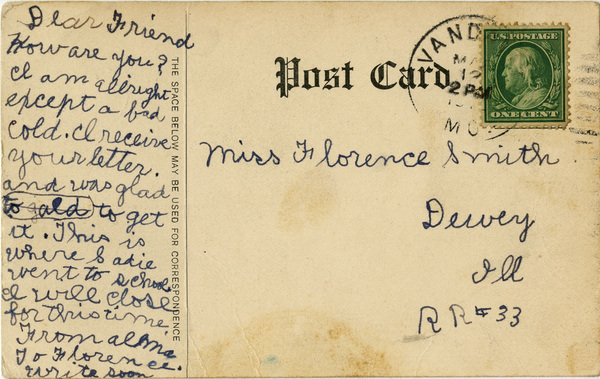 Dear Friend
How are you?
I am allright
except a bad
cold. I receive
your letter.
and was glad
to to get
it. This is
where Sadie
went to school
I will close
for this time.
From alma
To Florence.
write soon
THE SPACE BELOW MAY BE USED FOR CORRESPONDENCE
Post Card
VAND
12
2 PM
MO
U.S. POSTAGE
ONE CENT
Miss Florence Smith
Dewey
Ill
RR#33